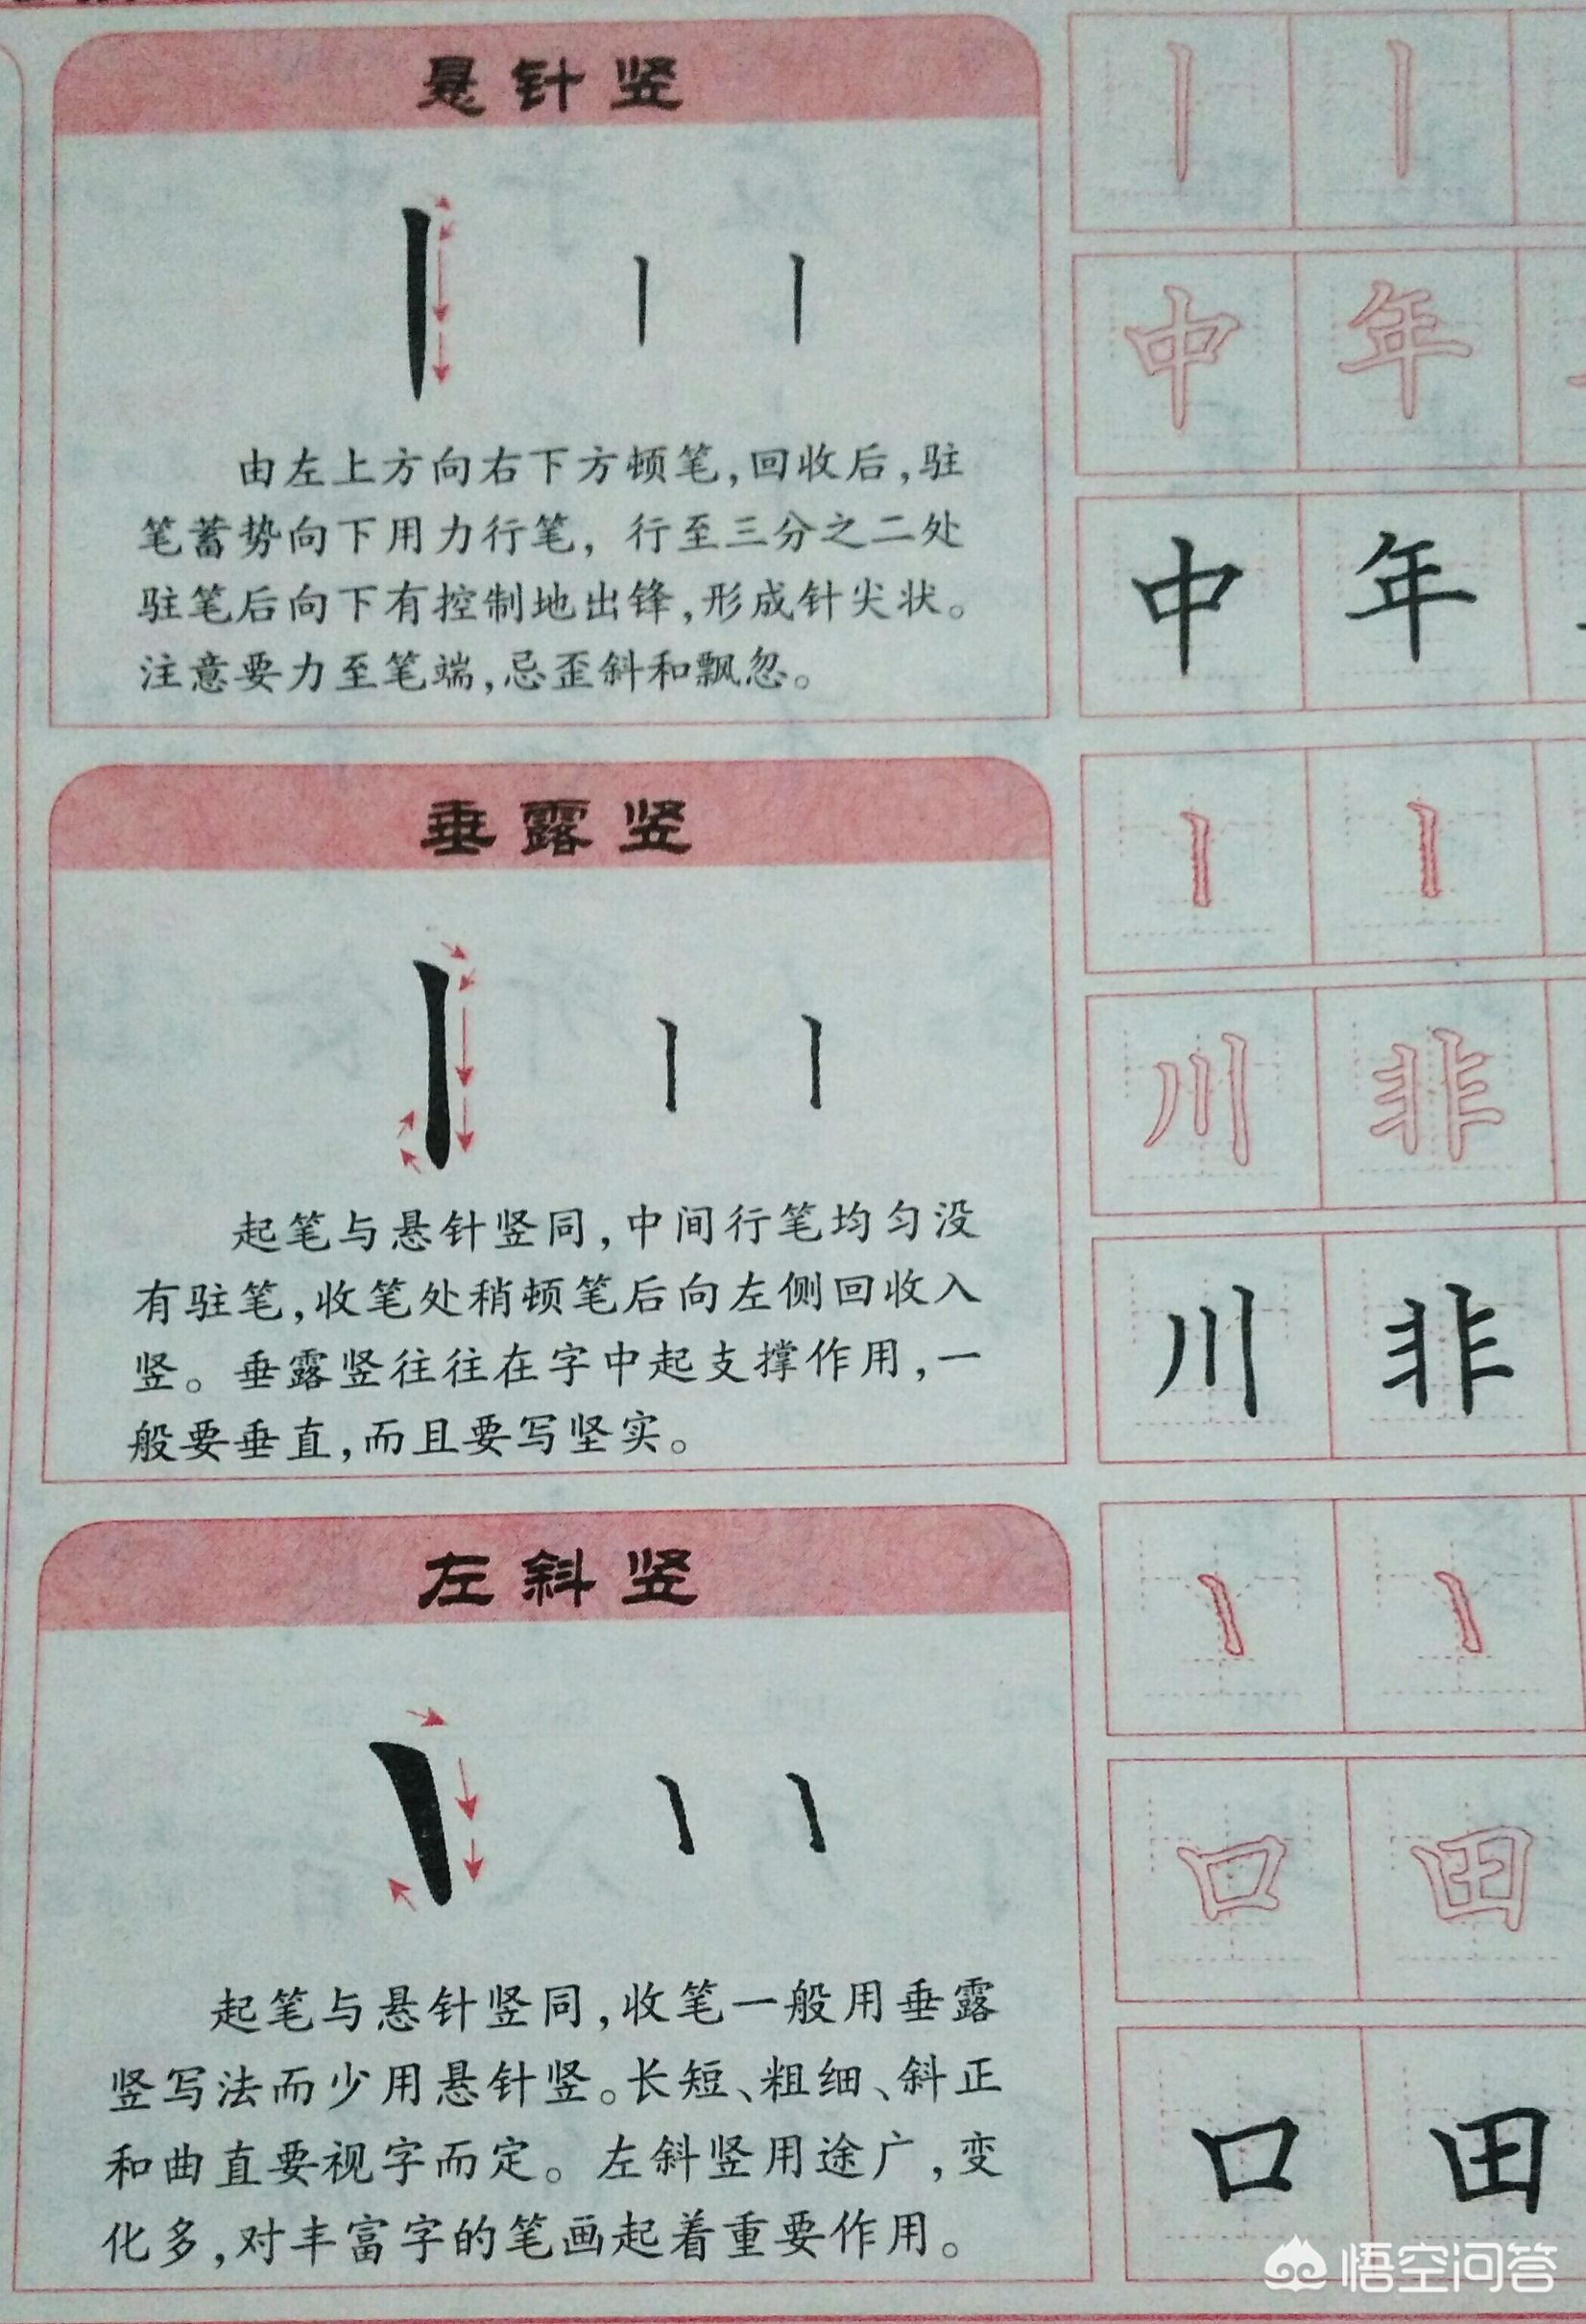 悬针竖
由左上方向右下方顿笔,回收后,驻
笔蓄势向下用力行笔,行至三分之二处
驻笔后向下有控制地出锋,形成针尖状。
注意要力至笔端,忌歪斜和飘忽。
中 年
中 年
垂露竖
起笔与悬针竖同,中间行笔均匀没
有驻笔,收笔处稍顿笔后向左侧回收入
竖。垂露竖往往在字中起支撑作用,一
般要垂直,而且要写坚实。
川 非
川 非
左斜竖
起笔与悬针竖同,收笔一般用垂露
竖写法而少用悬针竖。长短、粗细、斜正
和曲直要视字而定。左斜竖用途广,变
化多,对丰富字的笔画起着重要作用。
口 田
口 田
悟空问答